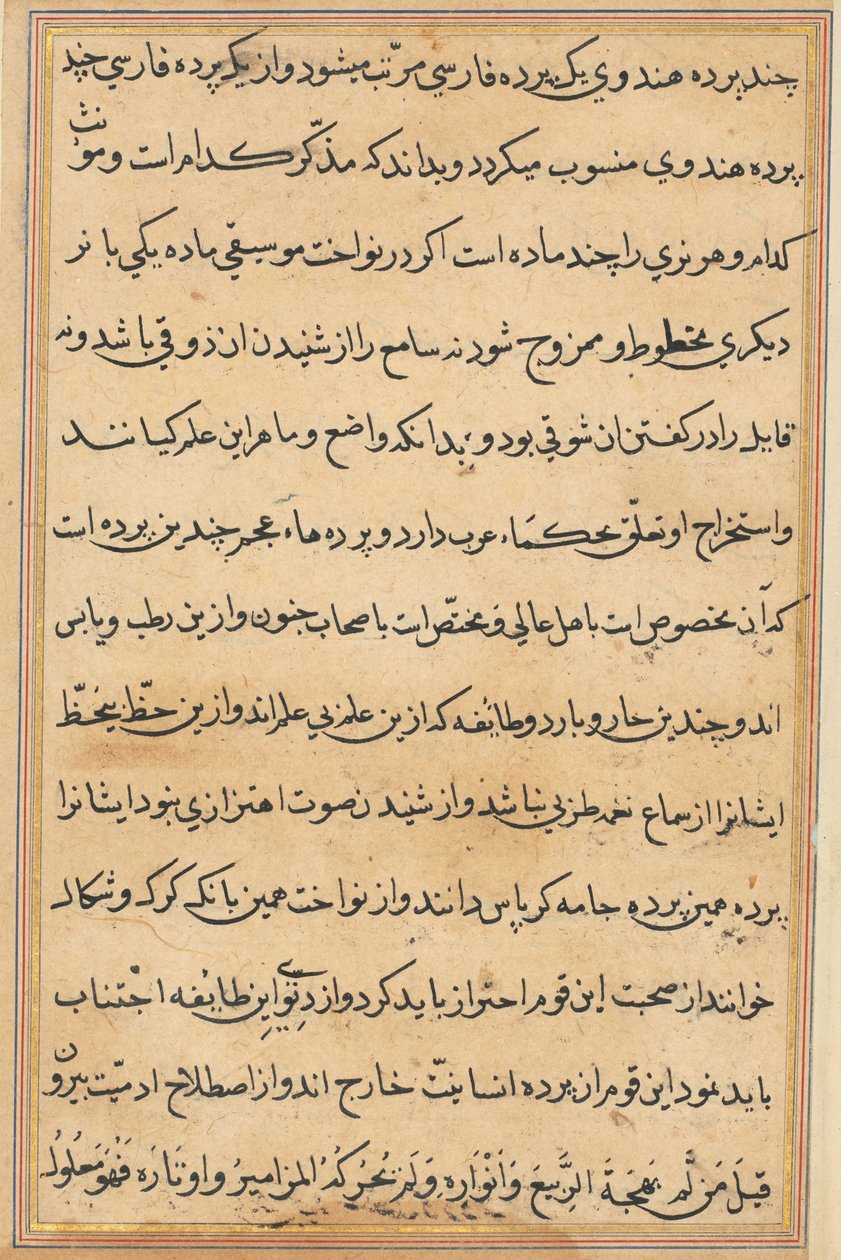 چند پرده هندوي يک پرده فارسي مرتّب ميشود و از يک پرده فارسي چند
پرده هندوي منسوب ميکردد و بداند که مذکّر کدام است و مؤنث
کدام و هر نري را چند ماده است اکر در نواخت موسيقي ماده يکي با نر
ديکري مخطوط و ممزوج شود نه سامع را از شنيدن ان ذوقي باشد و نه
قايل را در کفتن ان شوقي بود و بدانکه واضع و ماهر اين علم کيانند
و استخراج او تعلّق بحکمَاء عرب دارد و پرده هاء عجم چندين پرده است
که آن مخصوص است باهل عالي و مختصّ است باصحاب جنون و ازين رطب و يابس
اند و چندين حار و بارد و طائفه که ازين علم بي علم اند و ازين حظّ بيحظّ
ايشانرا از سماع نغمه طربي نباشد و از شنيدن صوت اهتزازي بنود ايشانرا
پرده همين پرده جامه کرپاس دانند و از نواخت همين بانک کرک و شکال
خوانند از صحبت اين قوم احتراز بايد کرد و از اين طايفه اجتناب
بايد نمود اين قوم از پرده انسانيتّ خارج اند و از اصطلاح ادميّت بيرون
قيلَ مَن لَم بَهجَةَ الرَّبيعَ وَاَنْوَارِه وَلَم يُحَرِّکهُ المزاميرُ و اوتَارَه فَهُوَ مَعْلُولُ